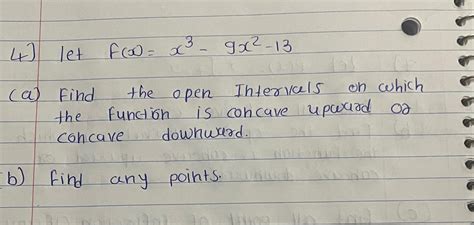 4) let f(x) = x³ - 9x² - 13
(a) Find the open Intervals on which
the function is concave upward or
concave downward.
b) Find any points.